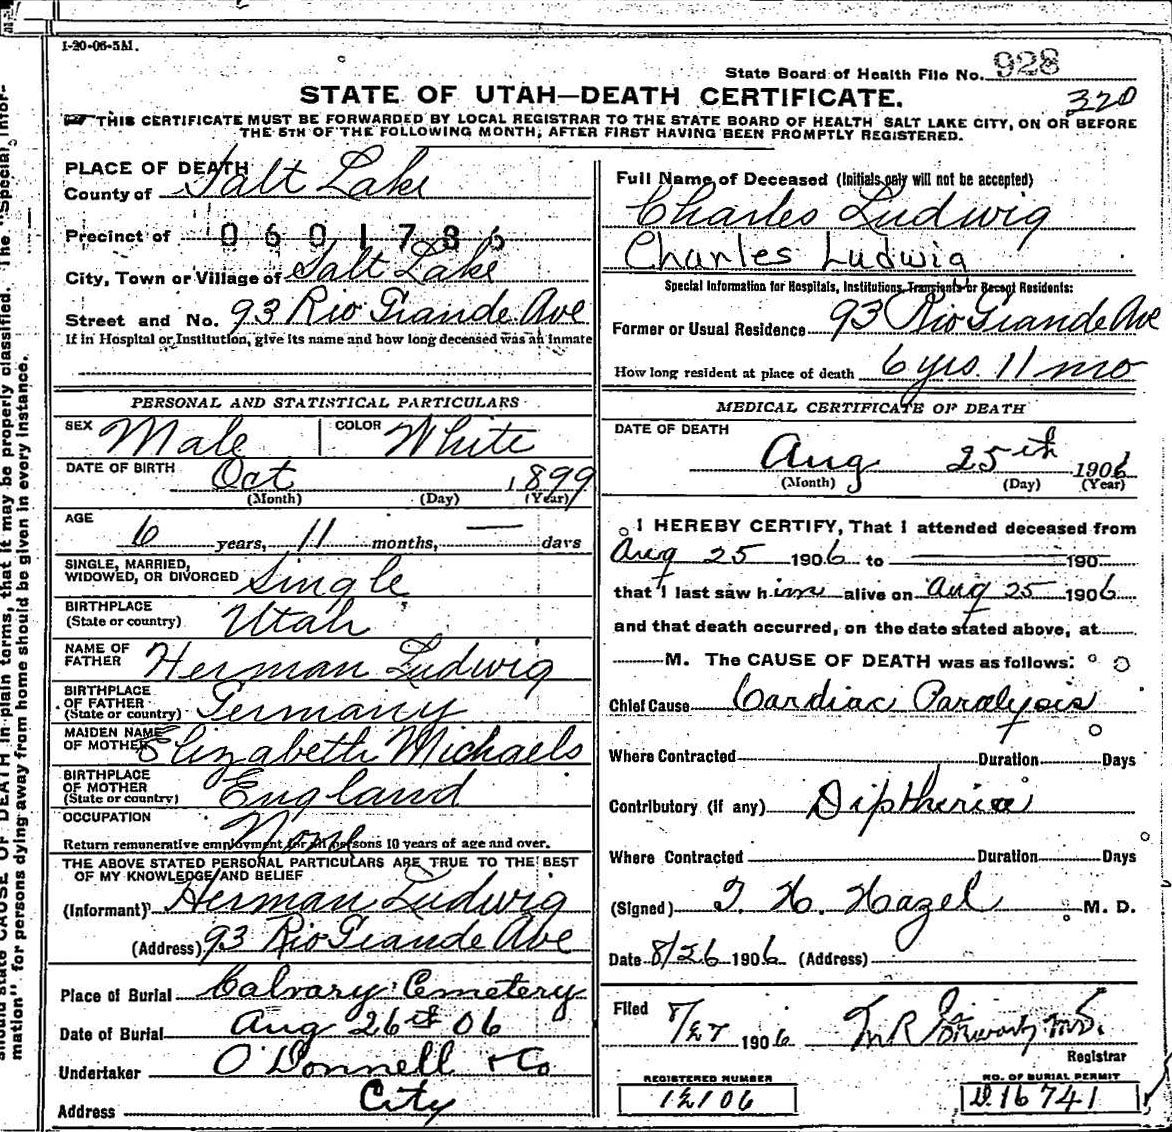 1-20-06-5M.
State Board of Health File No. 928
320
STATE OF UTAH—DEATH CERTIFICATE.
THIS CERTIFICATE MUST BE FORWARDED BY LOCAL REGISTRAR TO THE STATE BOARD OF HEALTH SALT LAKE CITY, ON OR BEFORE
THE 5TH OF THE FOLLOWING MONTH, AFTER FIRST HAVING BEEN PROMPTLY REGISTERED.
PLACE OF DEATH
County of Salt Lake
Precinct of 0601786
City, Town or Village of Salt Lake
Street and No. 93 Rio Grande Ave
If in Hospital or Institution, give its name and how long deceased was an inmate
Full Name of Deceased (Initials only will not be accepted)
Charles Ludwig
Charles Ludwig
Special Information for Hospitals, Institutions, Transients or Recent Residents:
Former or Usual Residence 93 Rio Grande Ave
How long resident at place of death 6 yrs. 11 mo
PERSONAL AND STATISTICAL PARTICULARS
SEX Male COLOR White
DATE OF BIRTH Oct 1899
(Month) (Day) (Year)
AGE
6 years, 11 months, — days
SINGLE, MARRIED,
WIDOWED, OR DIVORCED Single
BIRTHPLACE
(State or country) Utah
NAME OF
FATHER Herman Ludwig
BIRTHPLACE
OF FATHER
(State or country) Germany
MAIDEN NAME
OF MOTHER Elizabeth Michaels
BIRTHPLACE
OF MOTHER
(State or country) England
OCCUPATION
None
Return remunerative employment for all persons 10 years of age and over.
THE ABOVE STATED PERSONAL PARTICULARS ARE TRUE TO THE BEST
OF MY KNOWLEDGE AND BELIEF
(Informant) Herman Ludwig
(Address) 93 Rio Grande Ave
Place of Burial Calvary Cemetery
Date of Burial Aug 26th 06
Undertaker O'Donnell & Co
Address City
MEDICAL CERTIFICATE OF DEATH
DATE OF DEATH
Aug 25th 1906
(Month) (Day) (Year)
I HEREBY CERTIFY, That I attended deceased from
Aug 25 1906 to 190
that I last saw him alive on Aug 25 1906
and that death occurred, on the date stated above, at
M. The CAUSE OF DEATH was as follows:
Chief Cause Cardiac Paralysis
Where Contracted Duration Days
Contributory (if any) Diptheria
Where Contracted Duration Days
(Signed) T. H. Hazel M. D.
Date 8/26 1906 (Address)
Filed 8/27 1906 M.D.
Registrar
REGISTERED NUMBER
12106
NO. OF BURIAL PERMIT
D.16741
should state CAUSE OF DEATH in plain terms, that it may be properly classified. The "Special Infor-
mation" for persons dying away from home should be given in every instance.